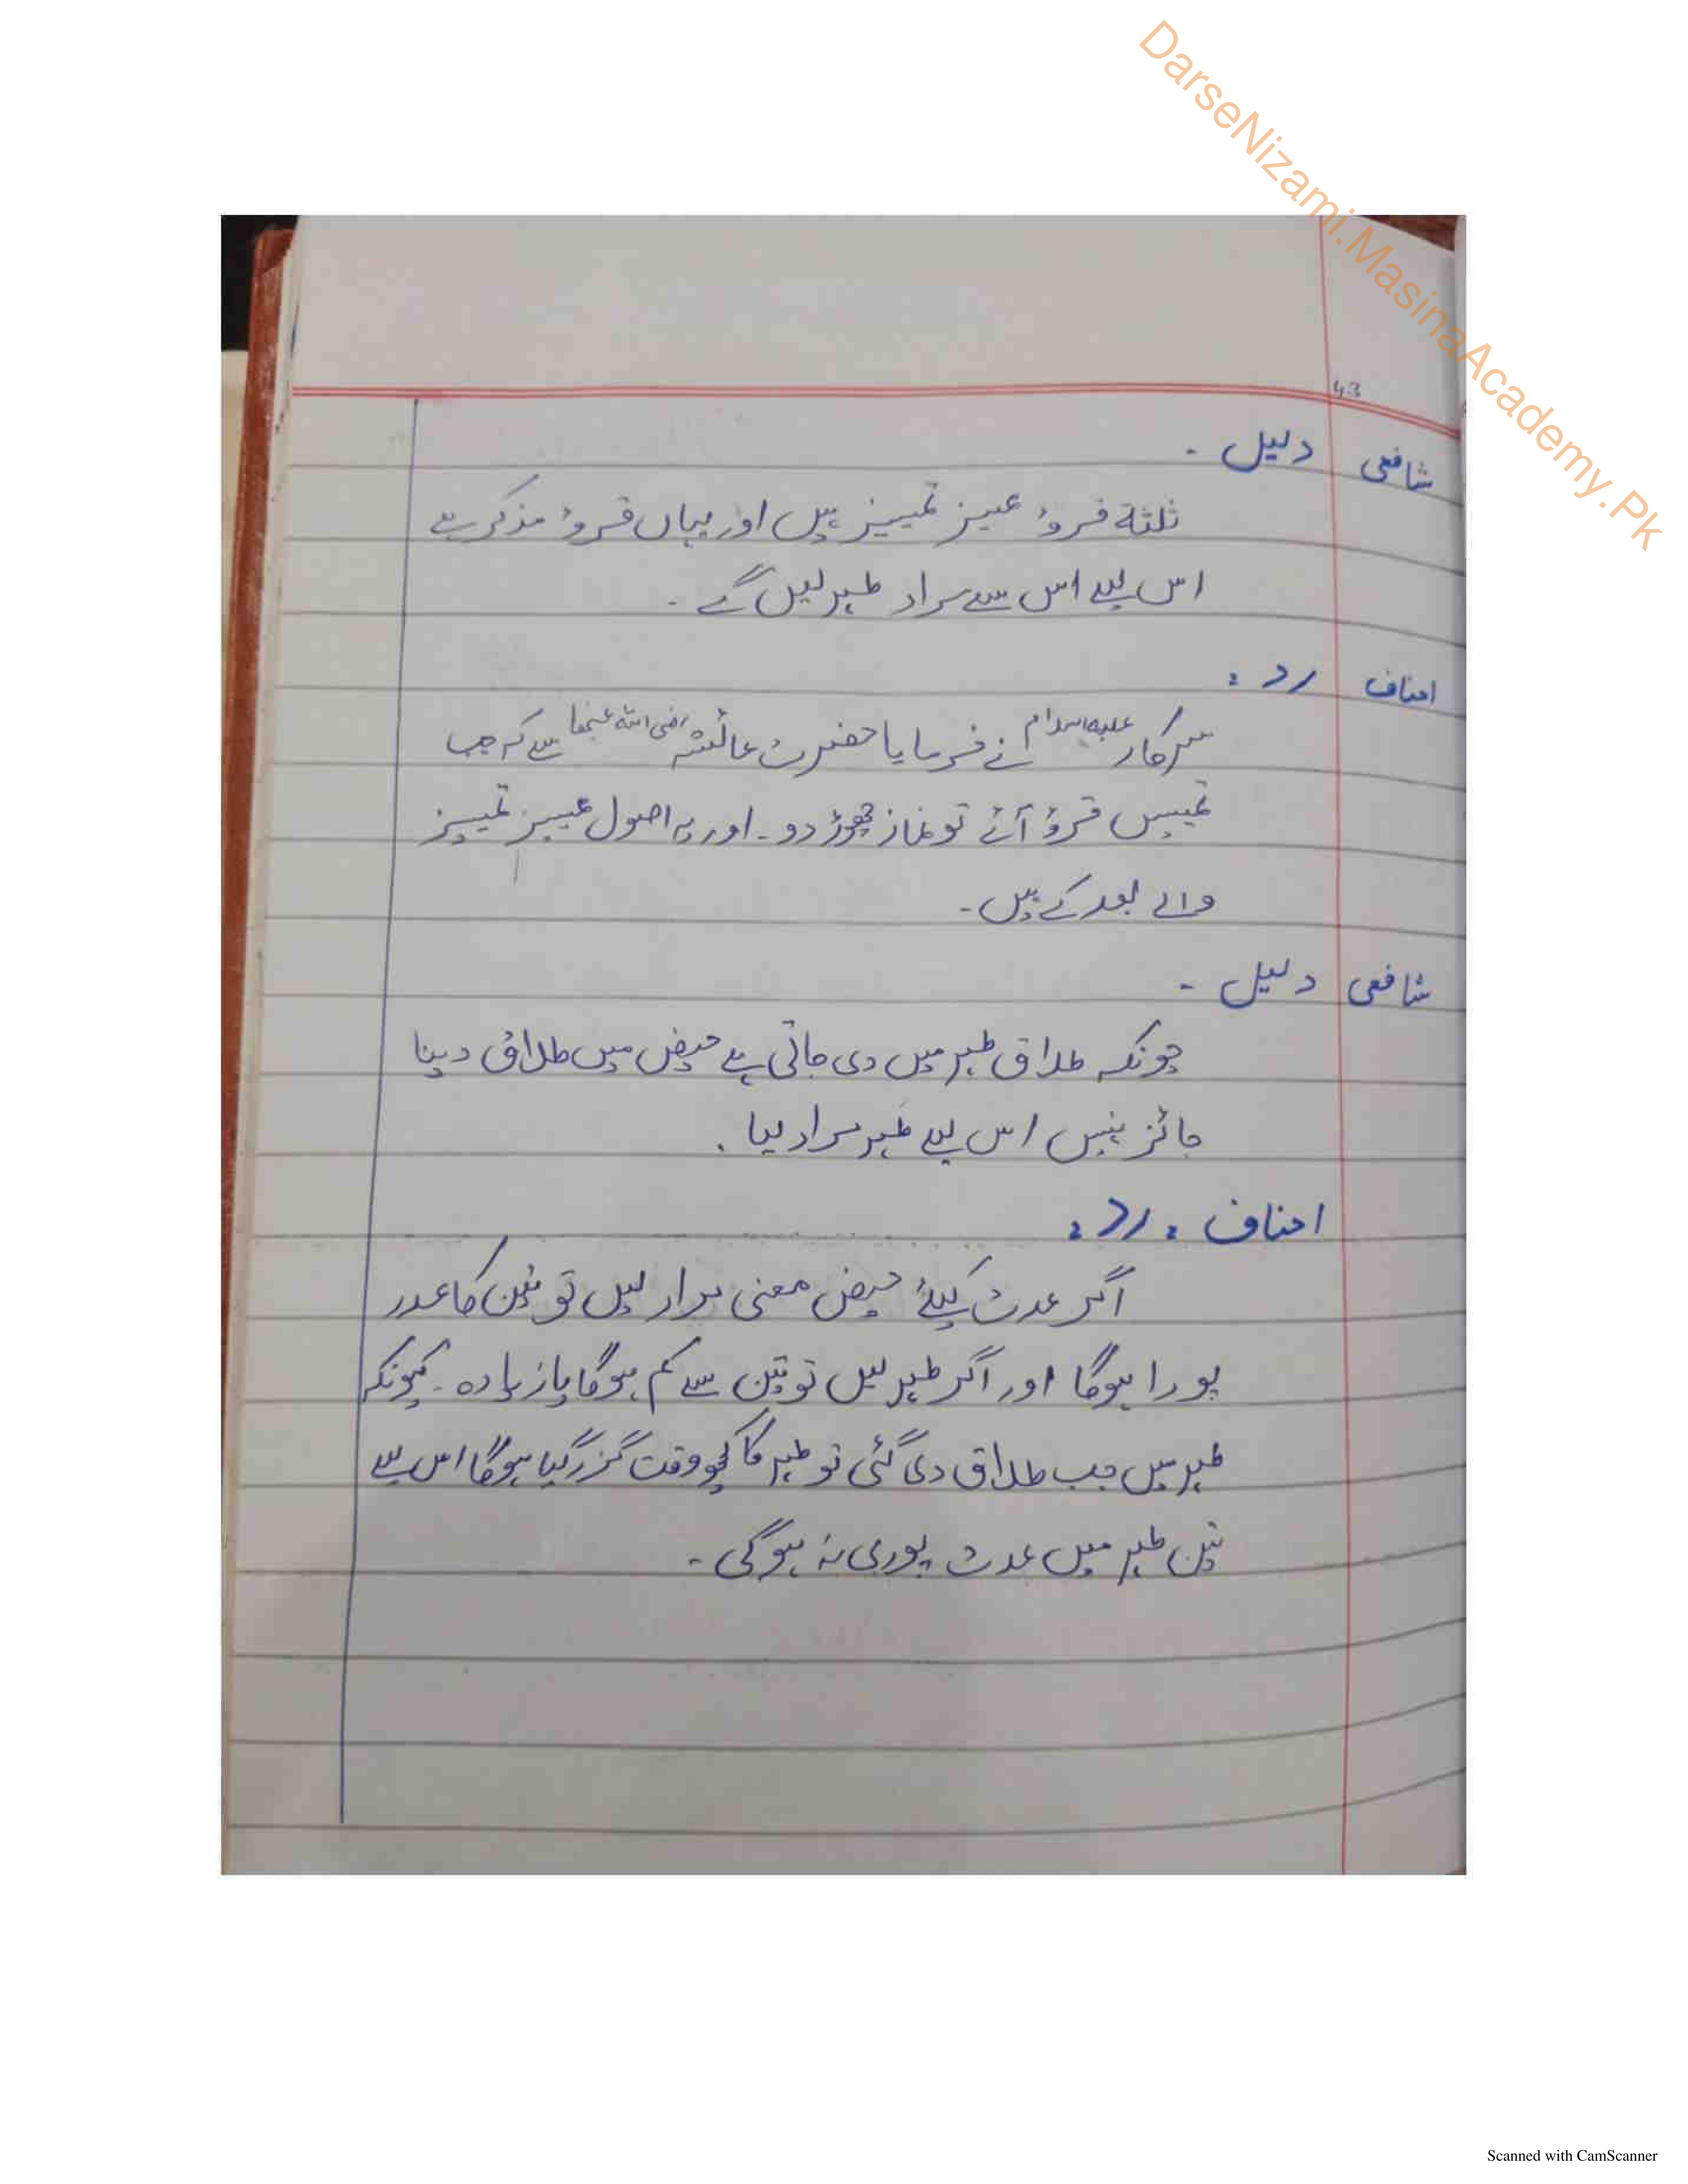 DarseNizami.MasinaAcademy.Pk
43
شافعی دلیل ۔
ثلثة قروء ممیز تمییز ہیں اور یہاں قروء مذکر ہے
اس لیے اس سے مراد طہر لیں گے ۔
احناف رد :
سرکار علیہ السلام نے فرمایا حضرت عائشہ رضی اللہ عنہا سے کہ جب
تمہیں قروء آئے تو نماز چھوڑ دو ۔ اور یہ اصول ممیز تمییز
والے بعد کے ہیں ۔
شافعی دلیل ۔
چونکہ طلاق طہر میں دی جاتی ہے حیض میں طلاق دینا
جائز نہیں اس لیے طہر مراد لیا ۔
احناف : رد :
اگر عدت کیلئے حیض معنی مراد لیں تو تین کا عدد
پورا ہوگا اور اگر طہر لیں تو تین سے کم ہوگا یا زیادہ ۔ کیونکہ
طہر میں جب طلاق دی گئی تو طہر کا کچھ وقت گزر گیا ہوگا اس لیے
تین طہر میں عدت پوری نہ ہوگی ۔
Scanned with CamScanner